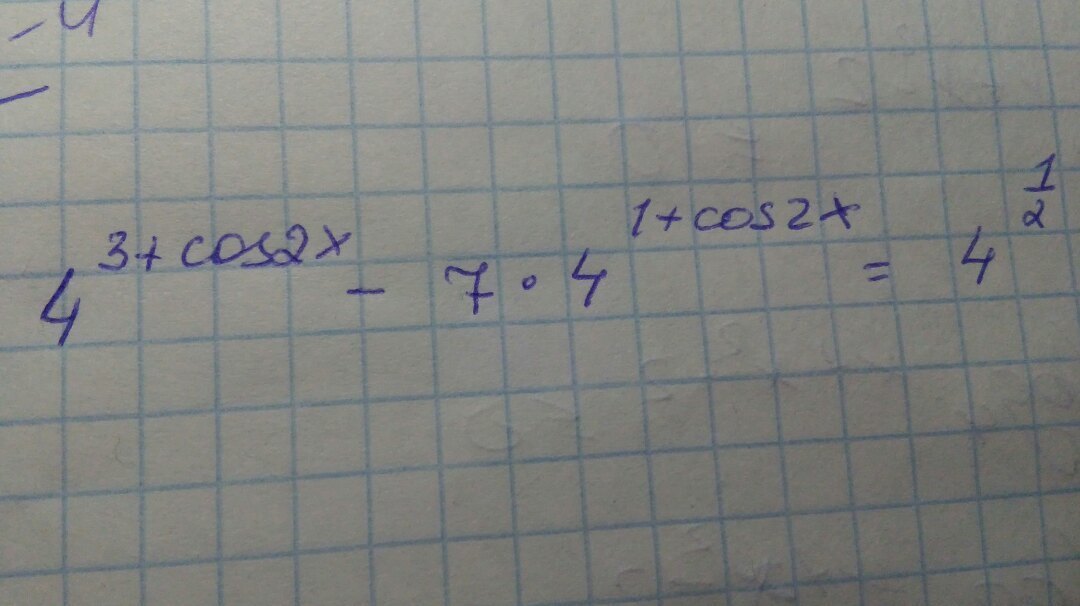 - 4
-
4^{3+cos2x} - 7 · 4^{1+cos2x} = 4^{\frac{1}{2}}